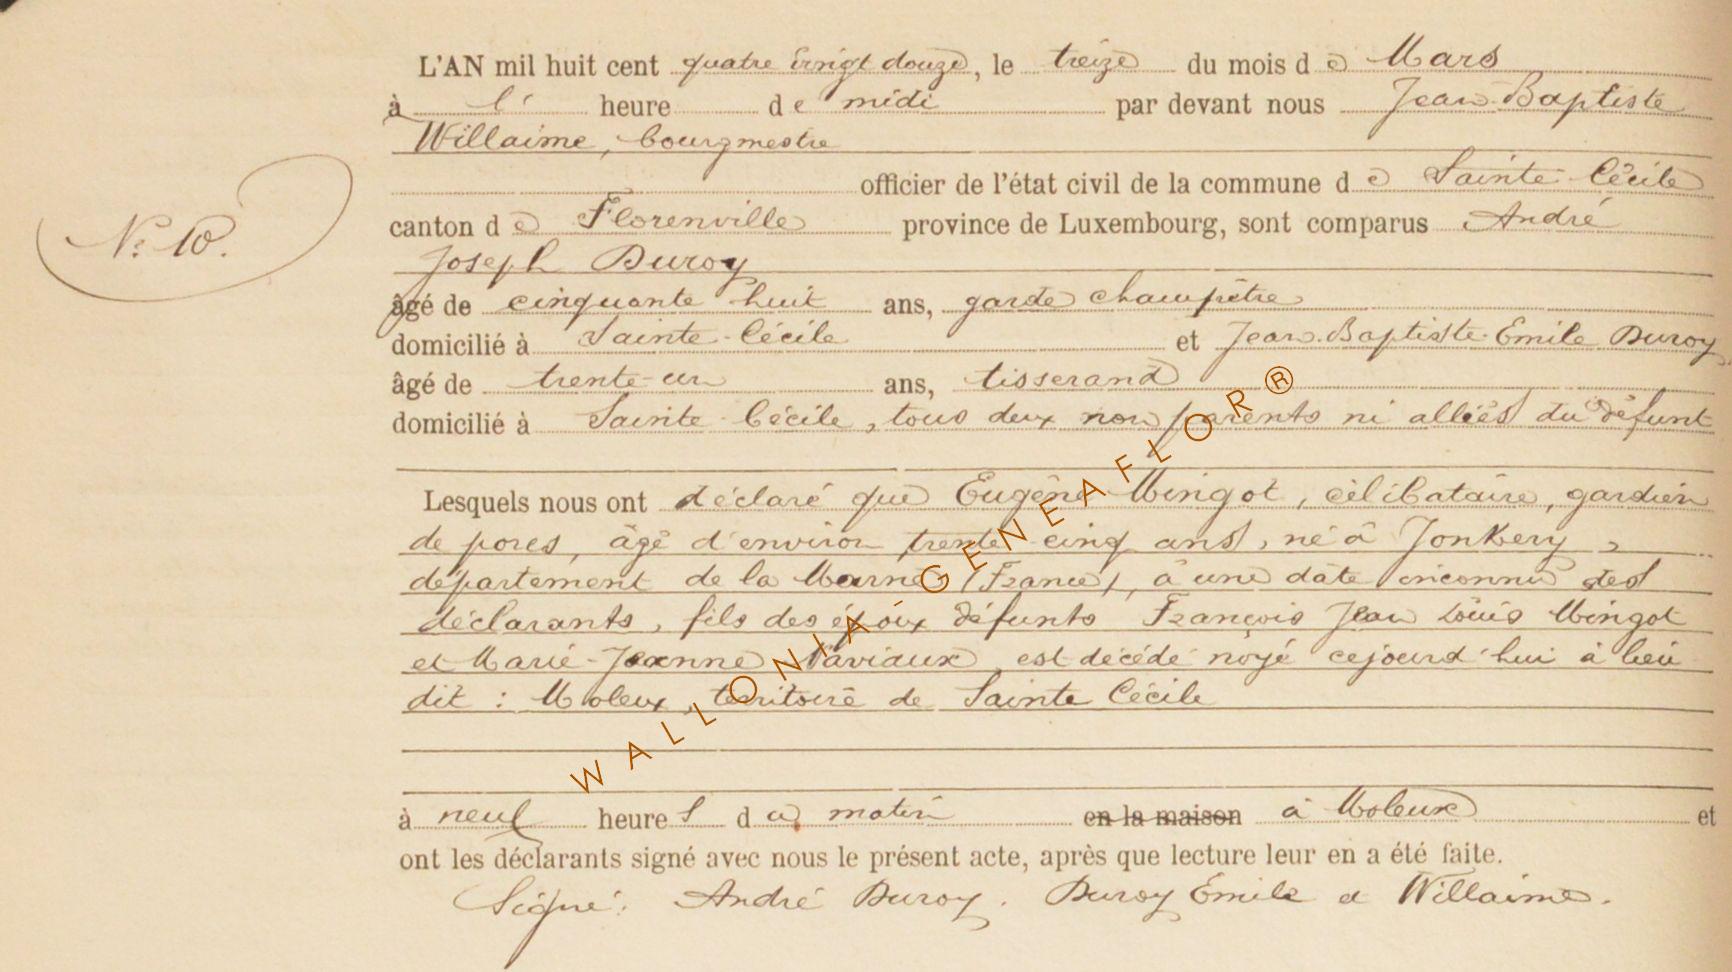 L'AN mil huit cent quatre vingt douze, le treize du mois de Mars
à l' heure de midi par devant nous Jean-Baptiste
Willaime, bourgmestre
officier de l'état civil de la commune de Sainte-Cécile
N° 10.
canton de Florenville province de Luxembourg, sont comparus André
Joseph Duroy
âgé de cinquante huit ans, garde champêtre
domicilié à Sainte-Cécile et Jean-Baptiste-Emile Duroy,
âgé de trente-un ans, tisserand
domicilié à Sainte-Cécile, tous deux non parents ni alliés du défunt
Lesquels nous ont déclaré que Eugène Mingot, célibataire, gardien
de porcs, âgé d'environ trente cinq ans, né à Jonkery,
département de la Marne (France), à une date inconnue des
déclarants, fils des époux défunts François Jean Louis Mingot
et Marie-Jeanne Naviaux, est décédé noyé cejourd'hui à lieu
dit : Moleux, territoire de Sainte Cécile
à neuf heures du matin en la maison à Moleux et
ont les déclarants signé avec nous le présent acte, après que lecture leur en a été faite.
Signé : André Duroy. Duroy Émile et Willaime.
WALLONIA GENEAFLOR®